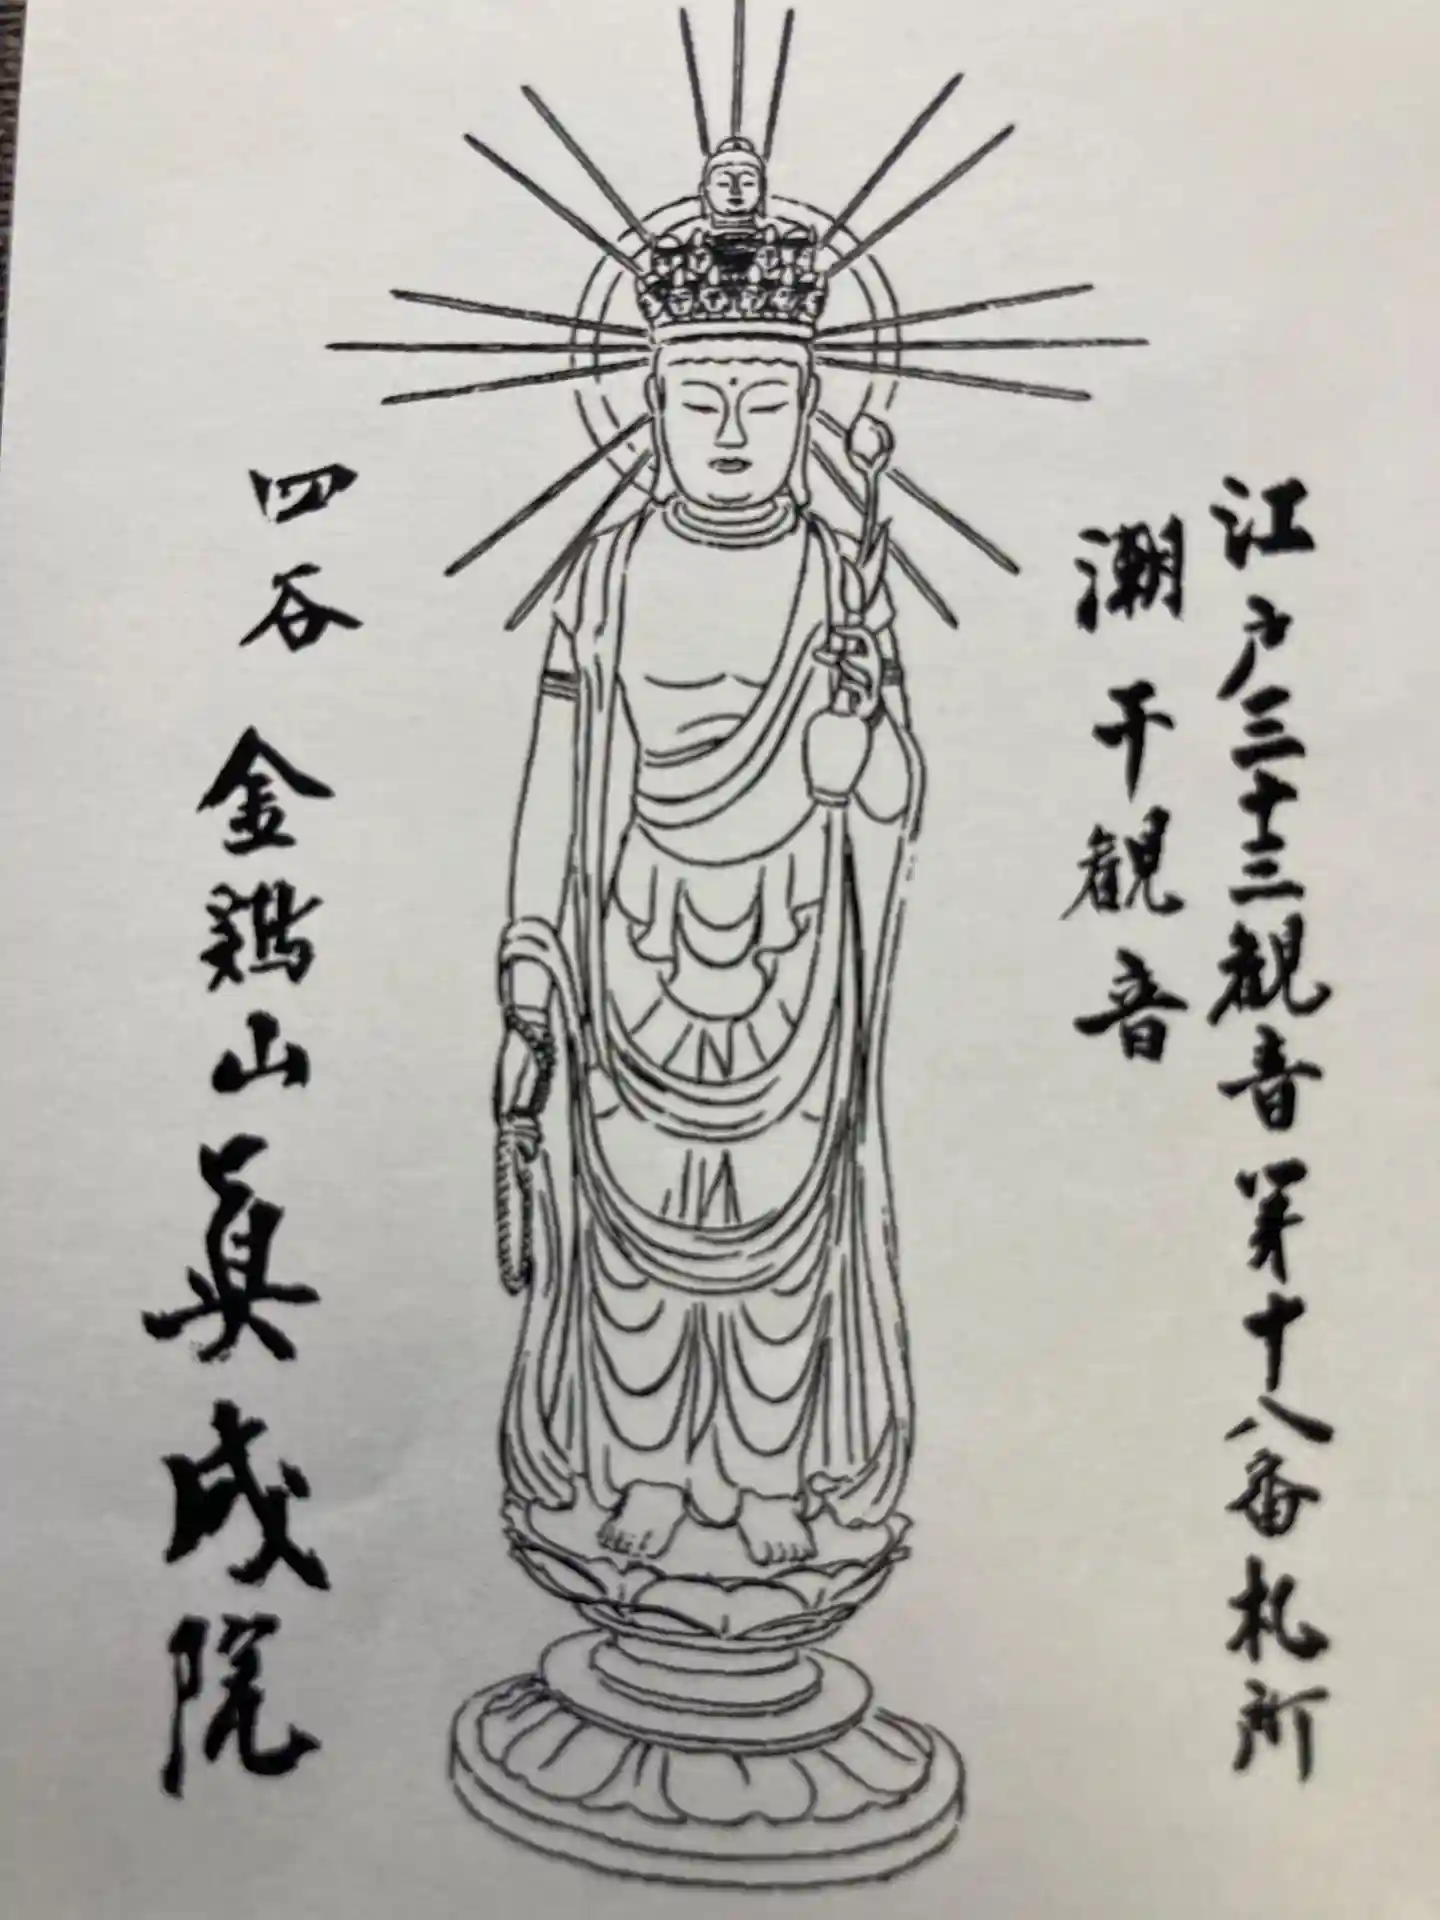 江戸三十三観音第十八番札所
潮干観音
四谷 金鶏山 眞成院